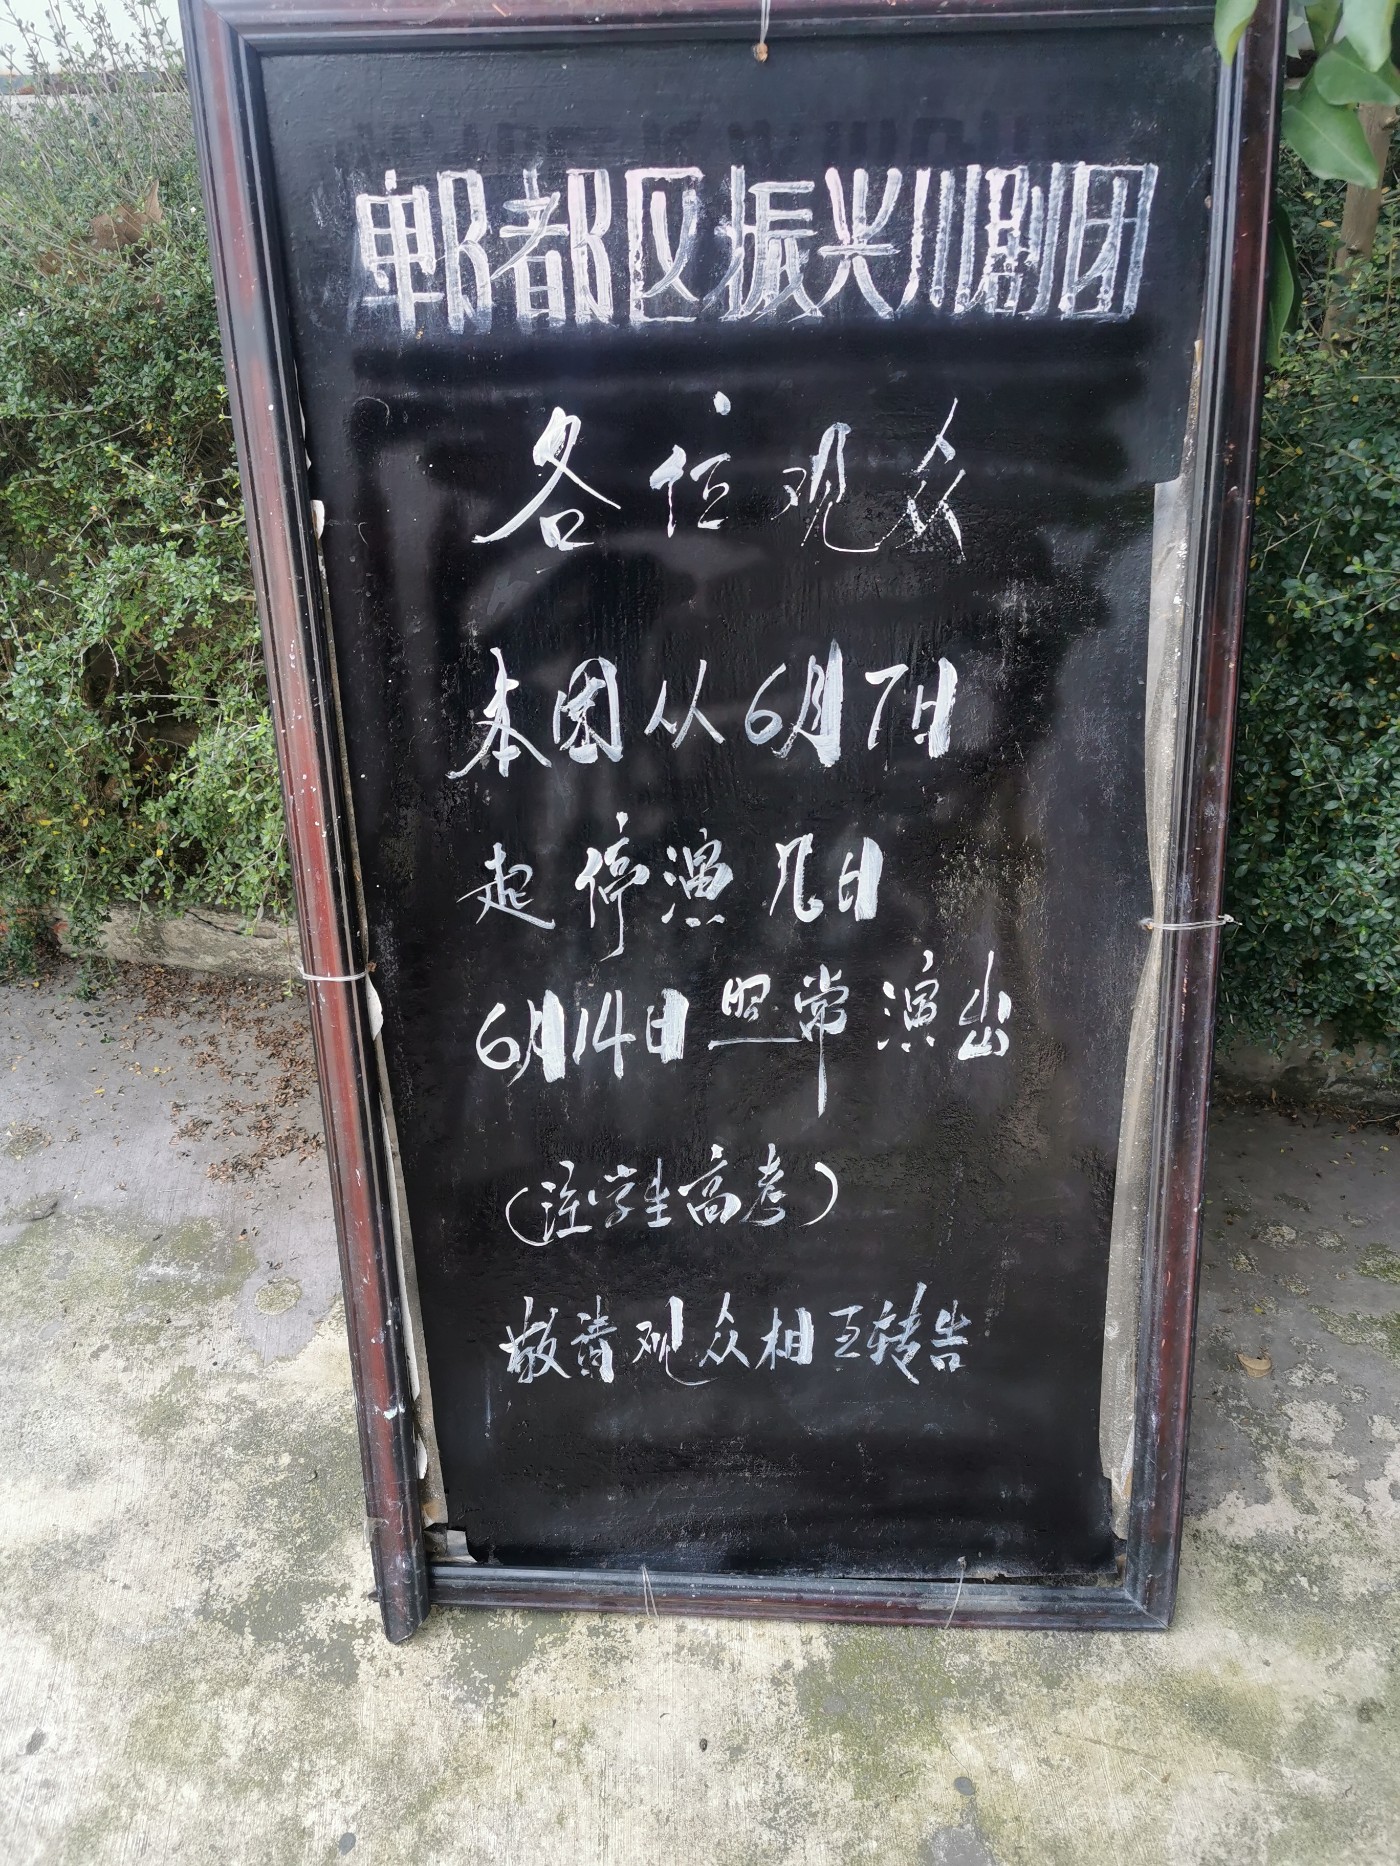 郫都区振兴川剧团
各位观众
本团从6月7日
起停演几日
6月14日照常演出
(注学生高考)
敬请观众相互转告